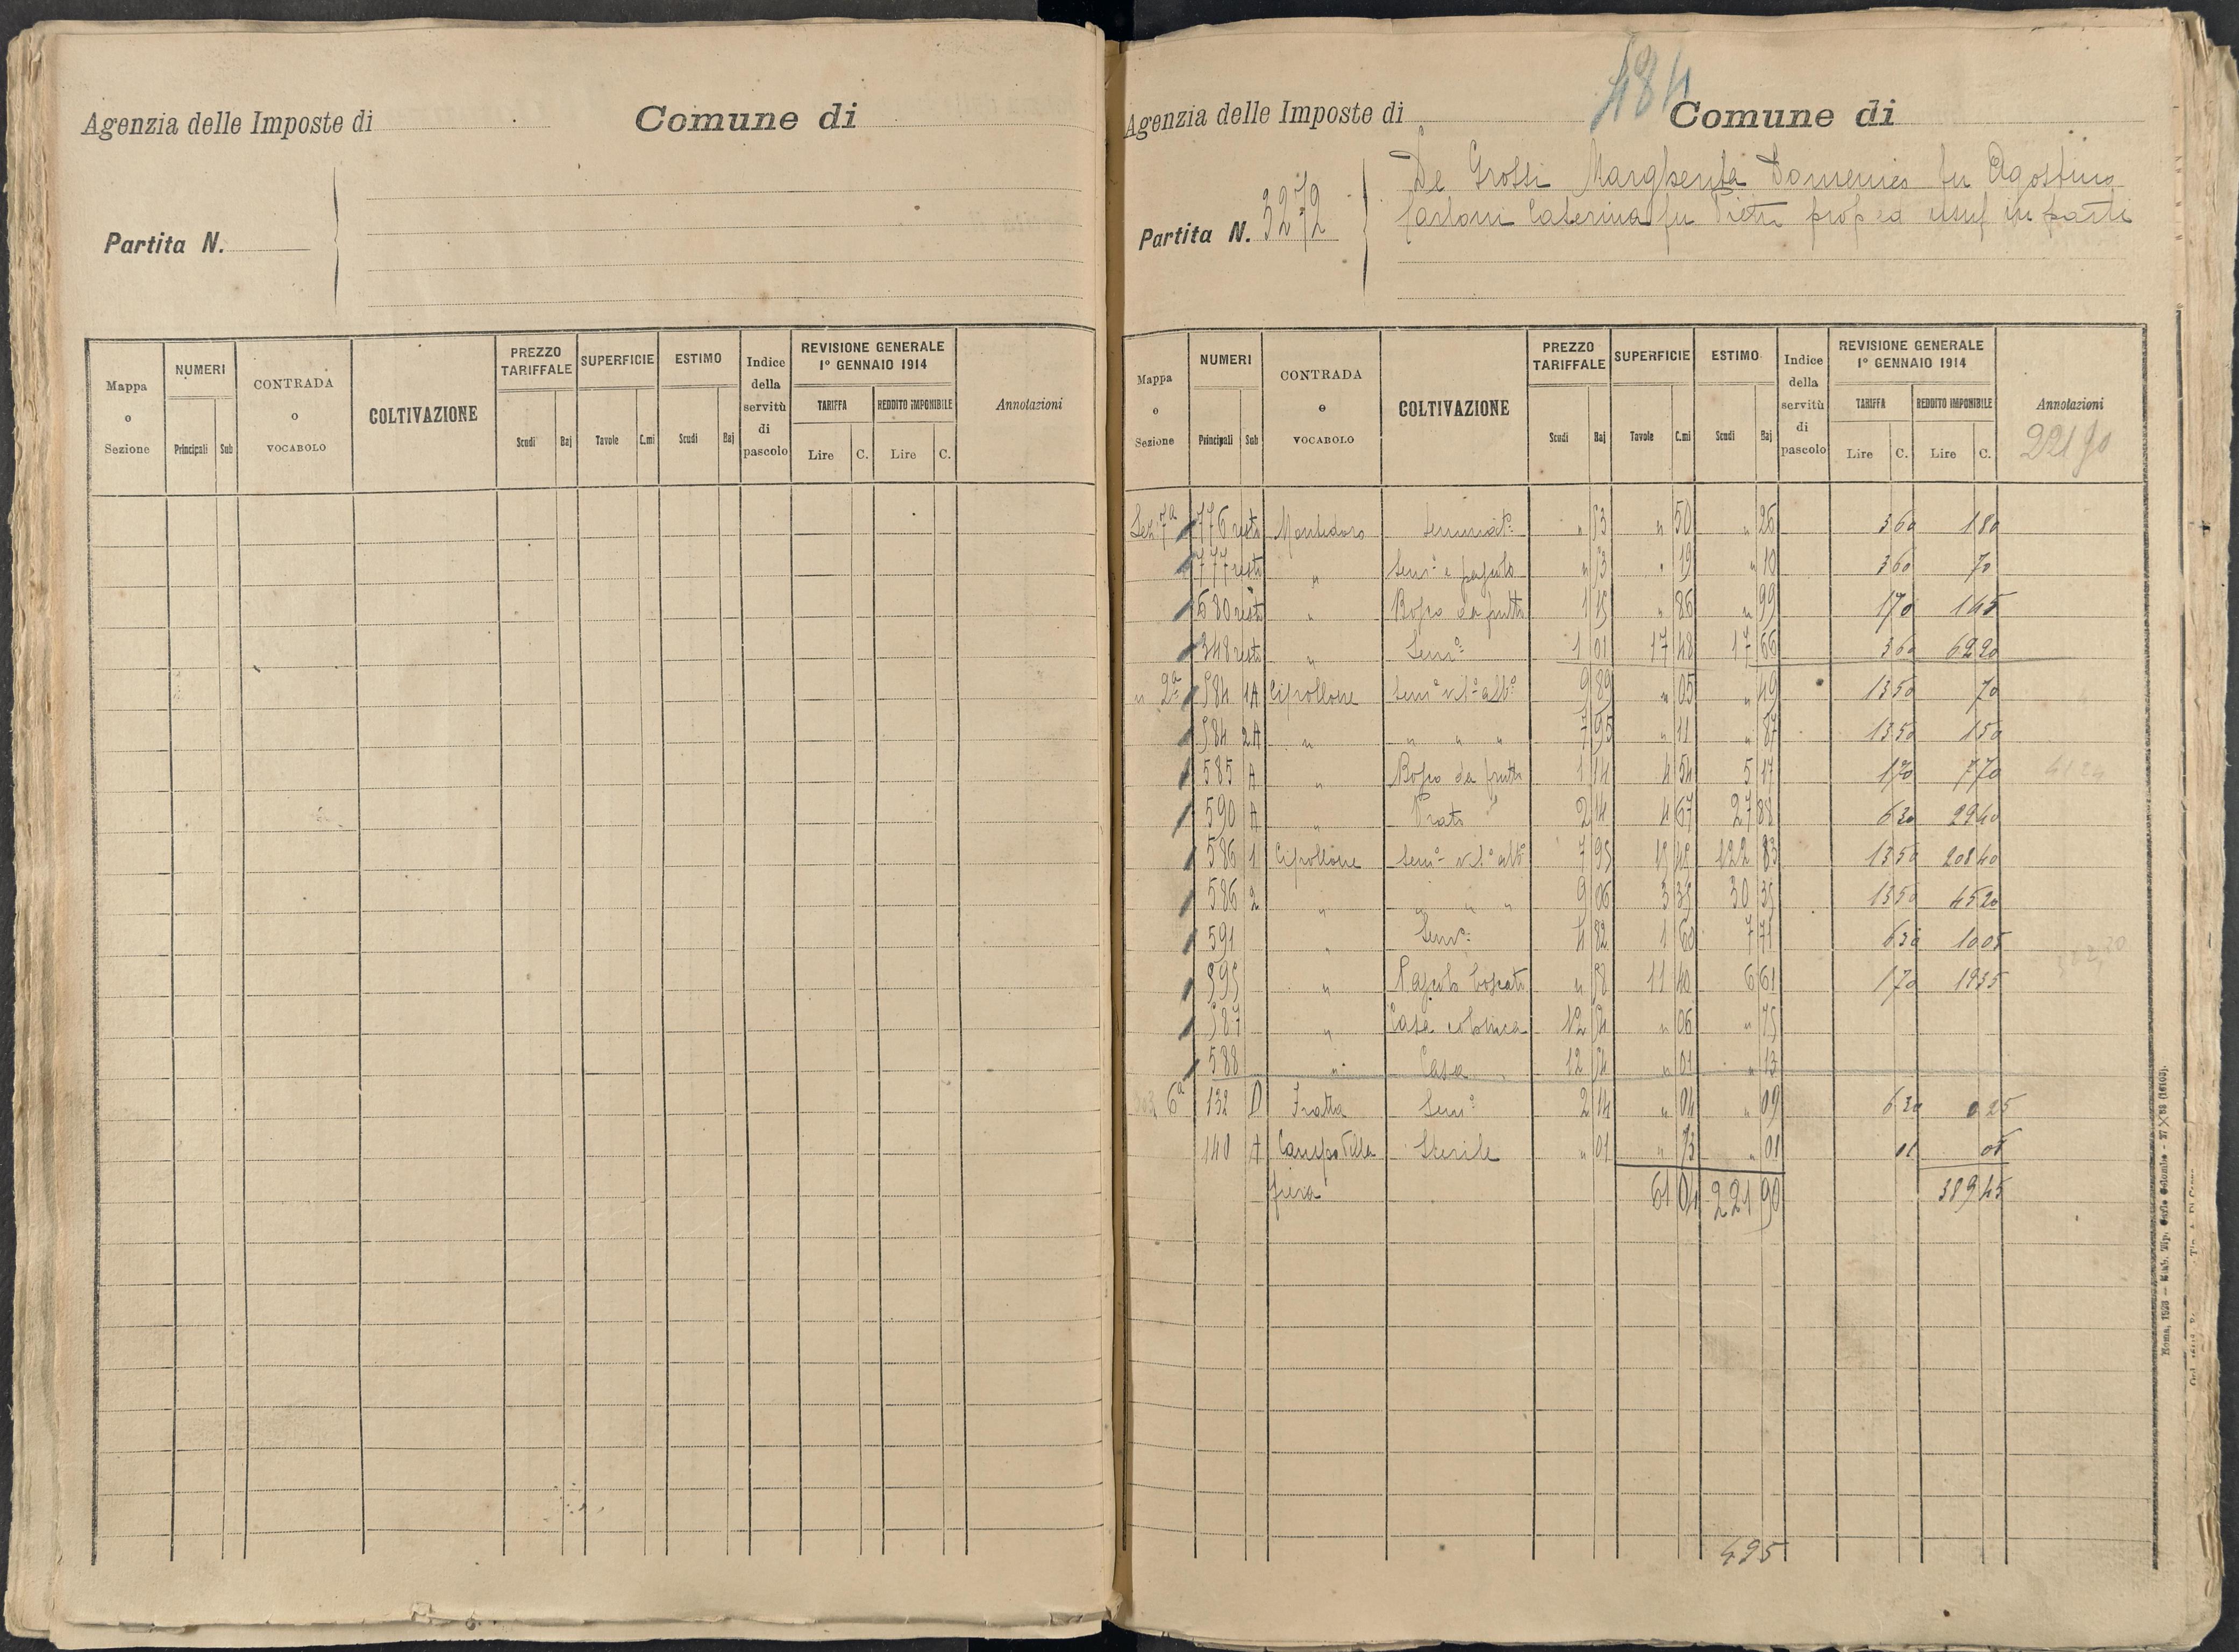 Agenzia delle Imposte di Comune di
Partita N.
Mappa e Sezione NUMERI Principali Sub CONTRADA o VOCABOLO COLTIVAZIONE PREZZO TARIFFALE Scudi Baj SUPERFICIE Tavole C.mi ESTIMO Scudi Baj Indice della servitù di pascolo REVISIONE GENERALE 1º GENNAIO 1914 TARIFFA Lire C. REDDITO IMPONIBILE Lire C. Annotazioni
484
Agenzia delle Imposte di Comune di
De Grossi Margherita Domenico fu Agostino
Partita N. 3272 Carloni Caterina fu Pietro prop ed usuf in parti
Mappa e Sezione NUMERI Principali Sub CONTRADA o VOCABOLO COLTIVAZIONE PREZZO TARIFFALE Scudi Baj SUPERFICIE Tavole C.mi ESTIMO Scudi Baj Indice della servitù di pascolo REVISIONE GENERALE 1º GENNAIO 1914 TARIFFA Lire C. REDDITO IMPONIBILE Lire C. Annotazioni
221 90
Sez 7ª 776 resto Montedoro Seminatº " 53 " 50 " 26 3 60 1 80
777 resto " Semº e pascolo " 53 " 19 " 10 3 60 70
680 resto " Bosco da frutto 1 15 " 86 " 99 1 70 1 45
348 resto " Semº 1 01 17 48 17 66 3 60 62 20
" 2ª 584 1A Cipollone Semº vitº albº 9 89 " 05 " 49 13 50 70
584 2A " " " " 7 95 " 11 " 87 13 50 1 50
585 A " Bosco da frutto 1 14 4 54 5 17 1 70 7 70
590 A " Prato 2 14 4 67 27 88 6 30 29 40
586 1 Cipollone Semº vitº albº 7 95 15 45 122 83 13 50 208 40
586 2 " " " " 9 06 3 35 30 35 13 50 45 20
591 " Semº 4 82 1 60 7 71 6 30 10 05
595 " Pascolo boscato " 58 11 40 6 61 1 70 19 35
587 " Casa colonica 12 54 " 06 " 75
588 " Casa 12 54 " 01 " 13
6ª 132 D Fratta Semº 2 14 " 04 " 09 6 30 0 25
140 A Campo Villa Sterile " 01 " 73 " 01 01 01
61 04 221 90 389 45
495
Roma, 1923 — Stab. Tip. Carlo Colombo